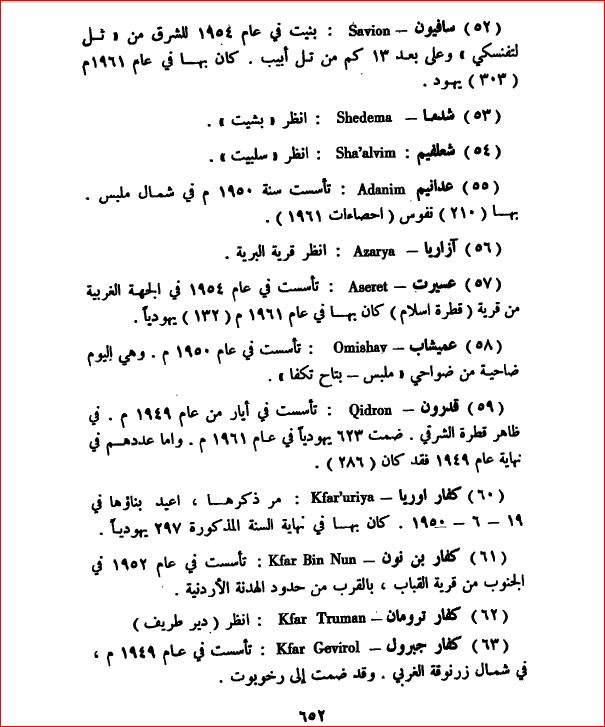 ( ٥٢ ) سافيون – Savion : بنيت في عام ١٩٥٤ للشرق من « تـل
لتفنسكي » وعلى بعد ١٣ كم من تل أبيب . كان بهـا في عام ١٩٦١م
( ٣٠٣ ) يهود .
( ٥٣ ) شدمـا – Shedema : انظر « بشيت » .
( ٥٤ ) شعلفيم : Sha'alvim : انظر « سلبيت » .
( ٥٥ ) عدانيم Adanim : تأسست سنة ١٩٥٠ م في شمال ملبس .
بهـا ( ٢١٠ ) نفوس ( احصاءات ١٩٦١ ) .
( ٥٦ ) آزاريا – Azarya : انظر قرية البرية .
( ٥٧ ) عسيرت – Aseret : تأسست في عام ١٩٥٤ في الجهة الغربية
من قرية ( قطرة اسلام ) كان بهـا في عام ١٩٦١ م ( ١٣٢ ) يهودياً .
( ٥٨ ) عميشاب – Omishav : تأسست في عام ١٩٥٠ م . وهي اليوم
ضاحية من ضواحي « ملبس – بتاح تكفا » .
( ٥٩ ) قدرون – Qidron : تأسست في أيار من عام ١٩٤٩ م . في
ظاهر قطرة الشرقي . ضمت ٦٢٣ يهودياً في عـام ١٩٦١ م . واما عددهـم في
نهاية عام ١٩٤٩ فقد كان ( ٢٨٦ ) .
( ٦٠ ) كفار اوريا – Kfar'uriya : مر ذكرهـا ، اعيد بناؤها في
١٩ – ٦ – ١٩٥٠ . كان بهـا في نهاية السنة المذكورة ٢٩٧ يهوديـاً .
( ٦١ ) كفار بن نون – Kfar Bin Nun : تأسست في عام ١٩٥٢ في
الجنوب من قرية القباب ، بالقرب من حدود الهدنة الأردنية .
( ٦٢ ) كفار ترومان – Kfar Truman : انظر ( دير طريف )
( ٦٣ ) كفار جبرول – Kfar Gevirol : تأسست في عـام ١٩٤٩ م ،
في شمال زرنوقة الغربي . وقد ضمت إلى رخوبوت .
٦٥٢